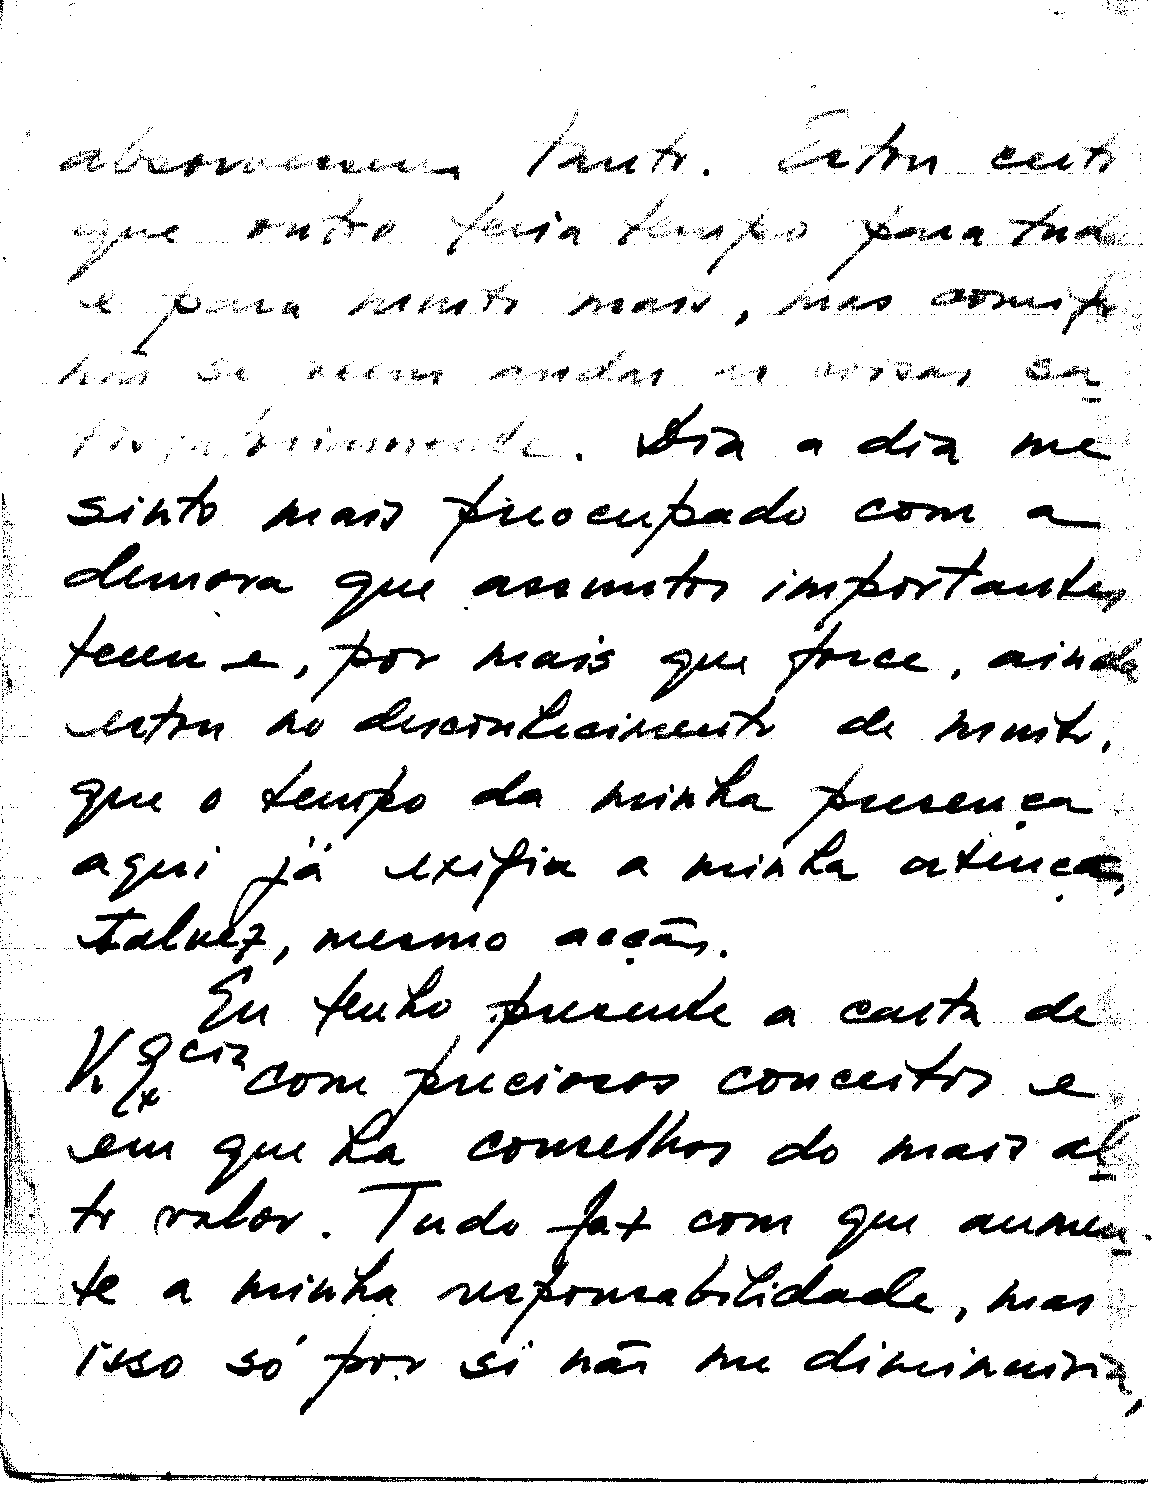 absorverem tanto. Estou certo
que outro teria tempo para tudo
e para muito mais, mas comigo
não se veem andar as coisas sa-
tisfatoriamente. Dia a dia me
sinto mais preocupado com a
demora que assuntos importantes
teem e, por mais que force, ainda
estou no desconhecimento de muito,
que o tempo da minha presença
aqui já exigia a minha atenção,
talvez, mesmo acção.
Eu tenho presente a carta de
V. Excia com preciosos conceitos e
em que ha conselhos do mais al-
to valor. Tudo faz com que aumen-
te a minha responsabilidade, mas
isso só por si não me diminuiria,